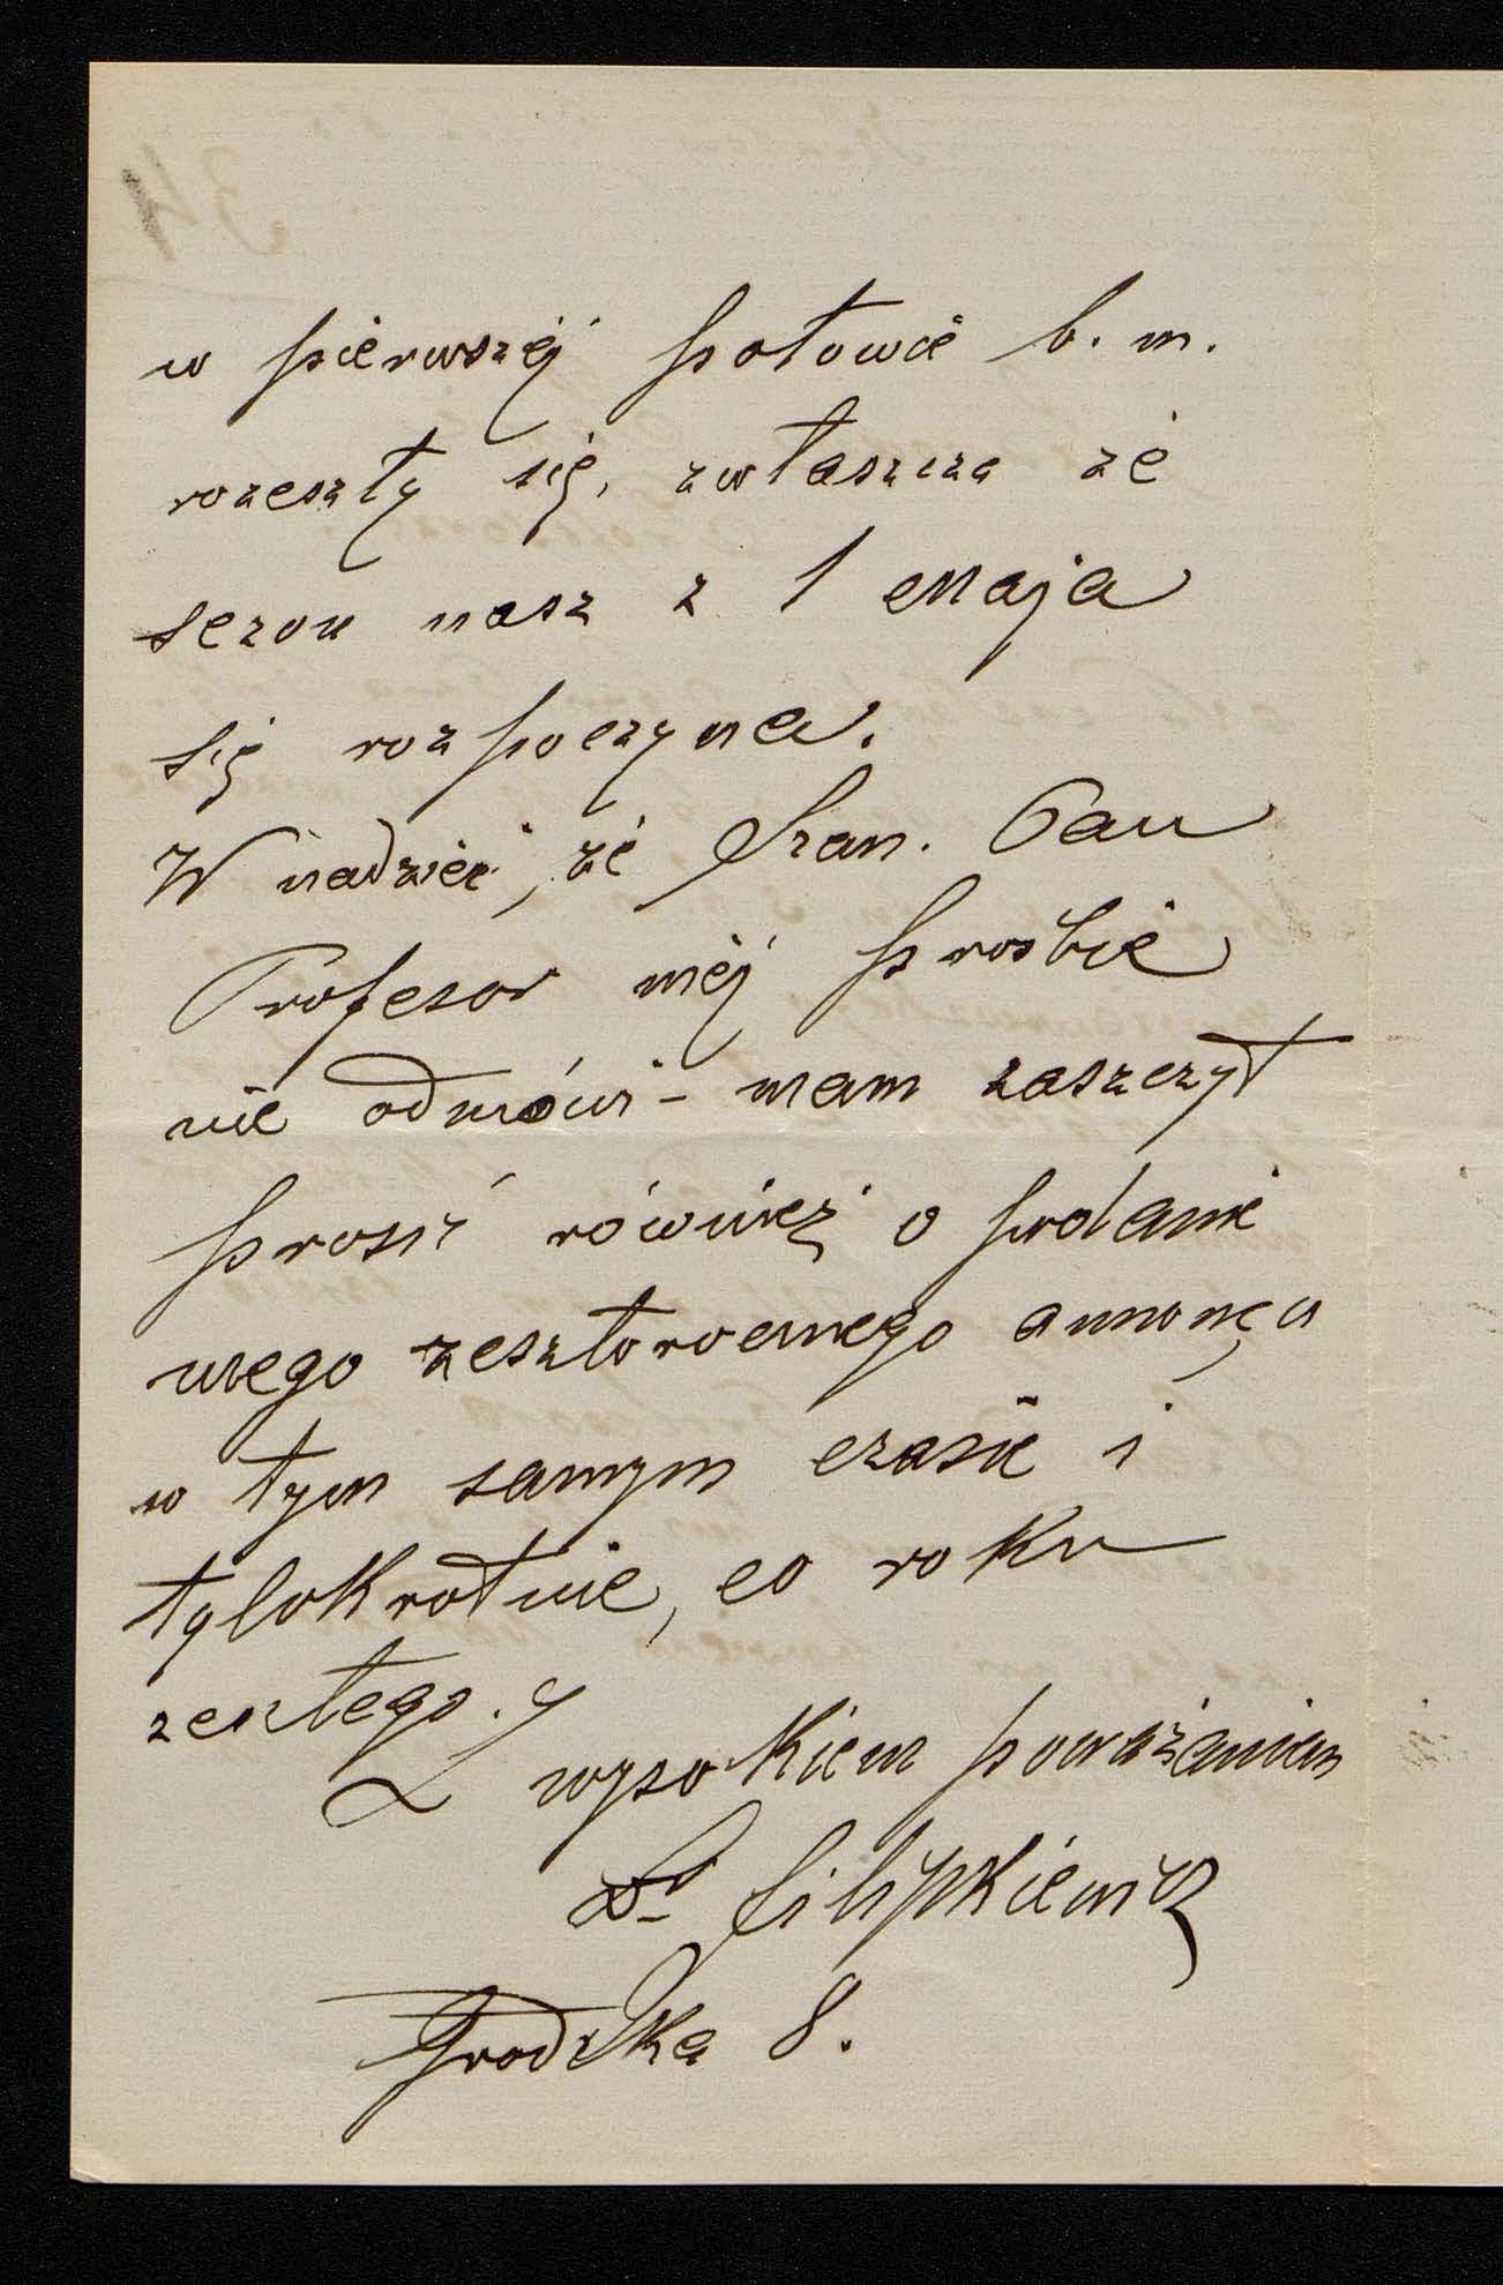 w pierwszéj połowie b. m.
rozeszły się, zwłaszcza że
sezon nasz z 1 Maja
się rozpoczyna.
W nadziei, że Szan. Pan
Profesor méj prośbie
nie odmówi - mam zaszczyt
prosić również o podanie
mego zeszłorocznego annonçu
w tym samym czasie i
tylokrotnie, co roku
zeszłego.
Z wysokiem poważaniem
Dr Filipkiewicz
Grodzka 8.